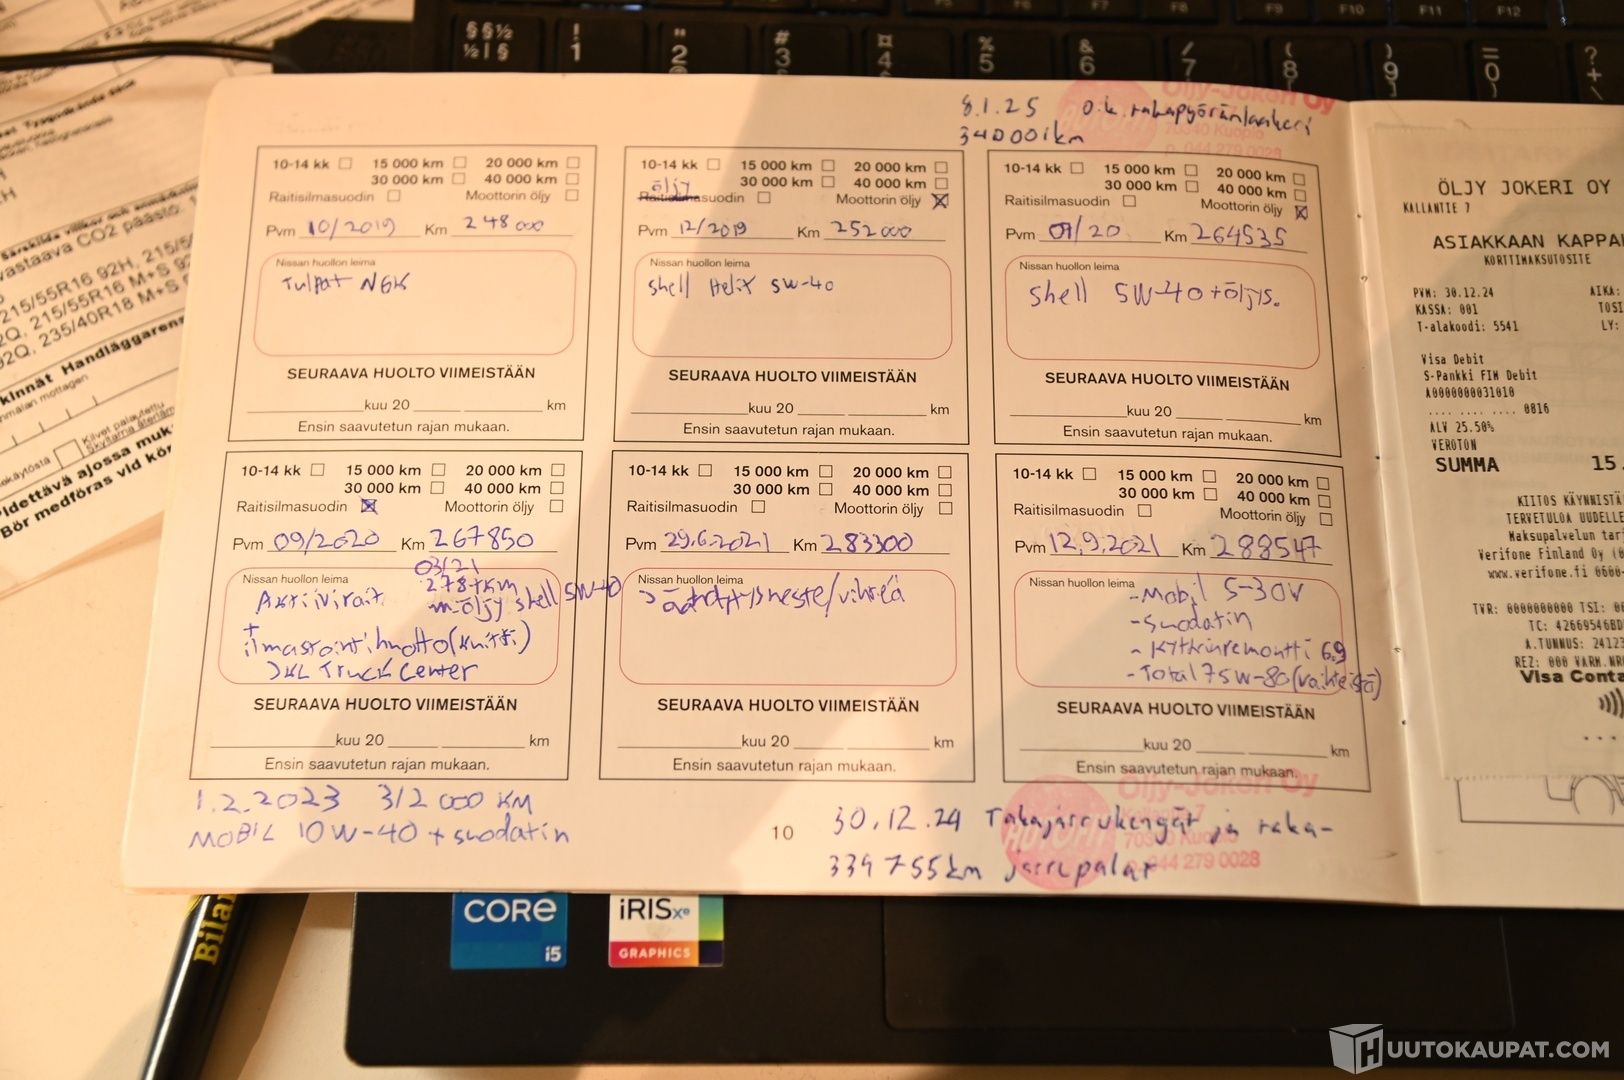 8.1.25 o.k. takapyöränlaakeri
340001km
10-14 kk 15 000 km 20 000 km
30 000 km 40 000 km
Raitisilmasuodin Moottorin öljy
Pvm 10/2019 Km 248 000
Nissan huollon leima
Tulpat NGK
SEURAAVA HUOLTO VIIMEISTÄÄN
kuu 20 km
Ensin saavutetun rajan mukaan.
10-14 kk 15 000 km 20 000 km
30 000 km 40 000 km
öljy
Raitisilmasuodin Moottorin öljy
Pvm 12/2019 Km 252 000
Nissan huollon leima
Shell Helix 5W-40
SEURAAVA HUOLTO VIIMEISTÄÄN
kuu 20 km
Ensin saavutetun rajan mukaan.
10-14 kk 15 000 km 20 000 km
30 000 km 40 000 km
Raitisilmasuodin Moottorin öljy
Pvm 07/20 Km 264535
Nissan huollon leima
Shell 5W-40 + öljys.
SEURAAVA HUOLTO VIIMEISTÄÄN
kuu 20 km
Ensin saavutetun rajan mukaan.
10-14 kk 15 000 km 20 000 km
30 000 km 40 000 km
Raitisilmasuodin Moottorin öljy
Pvm 09/2020 Km 267850
Nissan huollon leima
03/21
278tkm
Aktiivirait. m-öljy shell 5W-40
+
ilmastointihuolto (kuitti)
JKL Truck Center
SEURAAVA HUOLTO VIIMEISTÄÄN
kuu 20 km
Ensin saavutetun rajan mukaan.
10-14 kk 15 000 km 20 000 km
30 000 km 40 000 km
Raitisilmasuodin Moottorin öljy
Pvm 29.6.2021 Km 283300
Nissan huollon leima
Jäähdytysneste/vihreä
SEURAAVA HUOLTO VIIMEISTÄÄN
kuu 20 km
Ensin saavutetun rajan mukaan.
10-14 kk 15 000 km 20 000 km
30 000 km 40 000 km
Raitisilmasuodin Moottorin öljy
Pvm 12.9.2021 Km 288547
Nissan huollon leima
- Mobil 5-30W
- Suodatin
- Kytkinremontti 6.9
- Total 75W-80 (vaihteistö)
SEURAAVA HUOLTO VIIMEISTÄÄN
kuu 20 km
Ensin saavutetun rajan mukaan.
1.2.2023 312 000 KM
MOBIL 10W-40 + suodatin
10
30.12.24 Takajarrukengät ja taka-
339 755km jarrupalat
Öljy-Jokeri Oy
70340 Kuopio
p. 044 279 0028
Öljy-Jokeri Oy
044 279 0028
ÖLJY JOKERI OY
KALLANTIE 7
ASIAKKAAN KAPPA
KORTTIMAKSUTOSITE
PVM: 30.12.24 AIKA:
KASSA: 001 TOSI
T-alakoodi: 5541 LY:
Visa Debit
S-Pankki FIN Debit
A0000000031010
.... .... .... 0816
ALV 25.50%
VEROTON
SUMMA 15
KIITOS KÄYNNISTÄ
TERVETULOA UUDELLE
Maksupalvelun tar
Verifone Finland Oy (0
www.verifone.fi 0600-
TVR: 0000000000 TSI: 0
TC: 42669546BD
A.TUNNUS: 24123
REZ: 000 VARM.NR
Visa Conta
CORE
i5
iRIS Xe
GRAPHICS
Bilar
HUUTOKAUPAT.COM